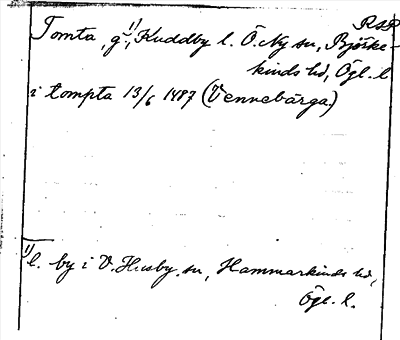 RSP
Tomta, g. 1), Kuddby l. Ö. Ny sn, Björke-
kinds hd, Ögl. l
i tompta 13/6 1487 (Vennebärga.)
1) l. by i V. Husby sn, Hammarkinds hd,
Ögl. l.